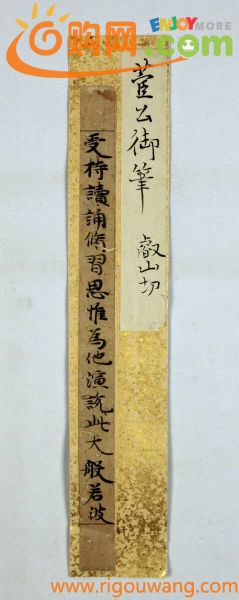 ENJOY
more
购网.com
菅公御筆 叡山切
受持讀誦修習思惟為他演說此大般若波
www.rigouwang.com